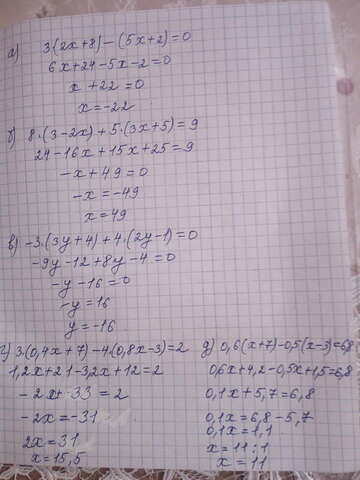 а) 3(2x+8)-(5x+2)=0
6x+24-5x-2=0
x+22=0
x=-22
б) 8·(3-2x)+5·(3x+5)=9
24-16x+15x+25=9
-x+49=0
-x=-49
x=49
в) -3·(3y+4)+4·(2y-1)=0
-9y-12+8y-4=0
-y-16=0
-y=16
y=-16
г) 3·(0,4x+7)-4(0,8x-3)=2
1,2x+21-3,2x+12=2
-2x+33=2
-2x=-31
2x=31
x=15,5
д) 0,6(x+7)-0,5(x-3)=6,8
0,6x+4,2-0,5x+1,5=6,8
0,1x+5,7=6,8
0,1x=6,8-5,7
0,1x=1,1
x=11:1
x=11